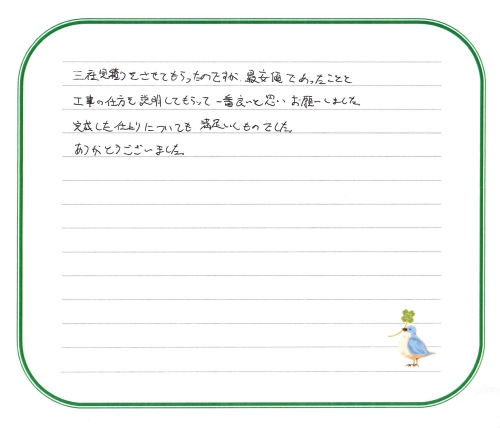 三社見積りをさせてもらったのですが、最安値であったことと
工事の仕方を説明してもらって一番良いと思いお願いしました。
完成した仕上りについても満足いくものでした。
ありがとうございました。